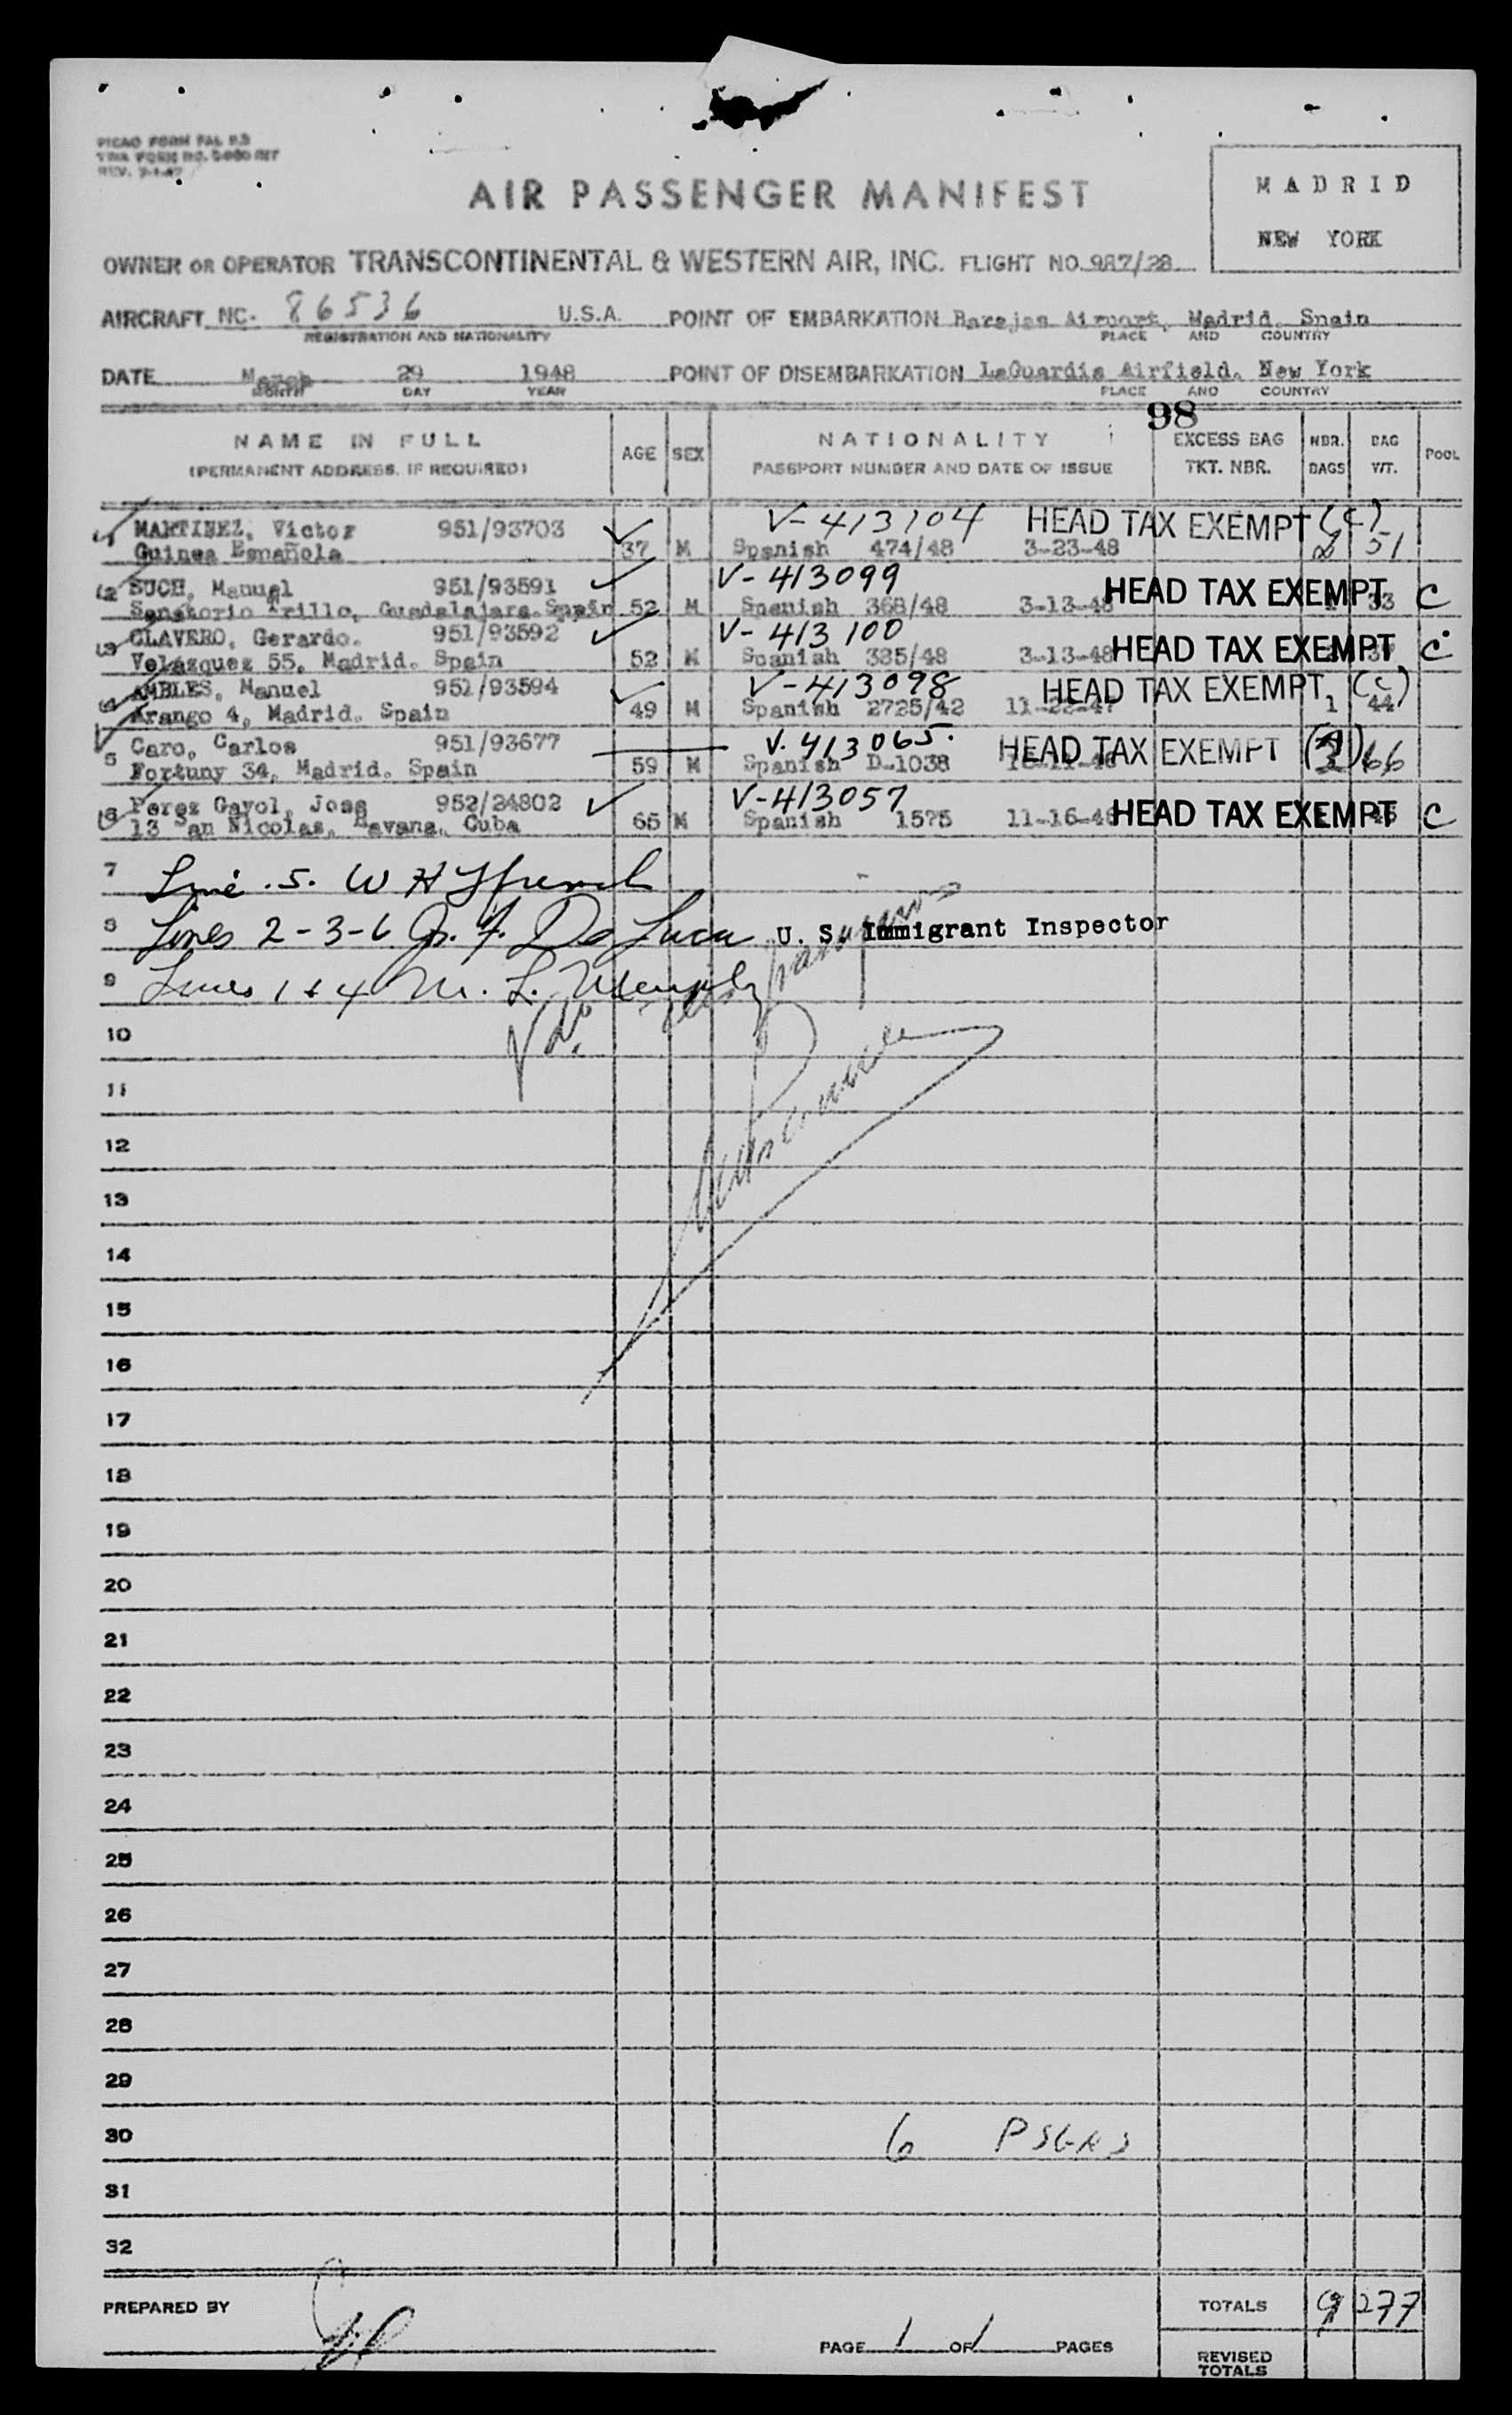 PICAO FORM FAL 2.3
TWA FORM NO.
REV. 7-1-47
AIR PASSENGER MANIFEST
MADRID
NEW YORK
OWNER OR OPERATOR TRANSCONTINENTAL & WESTERN AIR, INC. FLIGHT NO. 987/28
AIRCRAFT NC. 86536 U.S.A. POINT OF EMBARKATION Barajas Airport, Madrid, Spain
REGISTRATION AND NATIONALITY PLACE AND COUNTRY
DATE March 29 1948 POINT OF DISEMBARKATION LaGuardia Airfield, New York
MONTH DAY YEAR PLACE AND COUNTRY
98
NAME IN FULL AGE SEX NATIONALITY EXCESS BAG NBR. BAG POOL
(PERMANENT ADDRESS, IF REQUIRED) PASSPORT NUMBER AND DATE OF ISSUE TKT. NBR. BAGS WT.
MARTINEZ, Victor 951/93703 V-413104 HEAD TAX EXEMPT (C)
Guinea Española 37 M Spanish 474/48 3-23-48 2 51
2 SUCH, Manuel 951/93591 V-413099 HEAD TAX EXEMPT C
Sanatorio Trillo, Guadalajara. Spain 52 M Spanish 368/48 3-13-48 33
3 CLAVERO, Gerardo. 951/93592 V-413100 HEAD TAX EXEMPT C
Velázquez 55, Madrid. Spain 52 M Spanish 385/48 3-13-48
AMBLES, Manuel 951/93594 V-413098 HEAD TAX EXEMPT (C)
Arango 4, Madrid. Spain 49 M Spanish 2725/42 11-22-47 1 44
5 Caro, Carlos 951/93677 V. 413065. HEAD TAX EXEMPT (A)
Fortuny 34, Madrid. Spain 59 M Spanish D-1038 66
6 Perez Gayol, Jose 952/24802 V-413057 HEAD TAX EXEMPT C
13 San Nicolas, Havana, Cuba 65 M Spanish 1575
7 Line .5. W H Ffrench
8 Lines 2-3-6 Jr. F. De Luca U. S. Immigrant Inspector
9 Lines 1 & 4 M. L.
10
11
12
13
14
15
16
17
18
19
20
21
22
23
24
25
26
27
28
29
30 6 PSGRS
31
32
PREPARED BY TOTALS 9 277
PAGE 1 OF 1 PAGES
REVISED
TOTALS